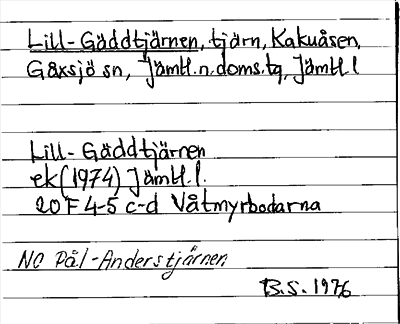 Lill-Gäddtjärnen, tjärn, Kakuåsen,
Gåxsjö sn, Jämtl.n.doms.tg, Jämtl.l
Lill-Gäddtjärnen
ek(1974) Jämtl.l.
20F 4-5 c-d Våtmyrbodarna
NO Pål-Anderstjärnen
B.S. 1976